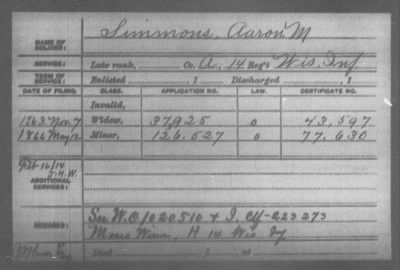 NAME OF SOLDIER: Simmons, Aaron M
SERVICE: Late rank, Co. A, 14 Reg't Wis. Inf
TERM OF SERVICE: Enlisted , 1 Discharged , 1
DATE OF FILING. CLASS. APPLICATION NO. LAW. CERTIFICATE NO.
Invalid,
1863 Nov. 7 Widow, 37,925 o 43,597
1866 May 2 Minor, 126,527 o 77,630
Feb 16/14
ADDITIONAL SERVICES:
REMARKS: See W.O 1020510 & I. Cf 223273
H 14 Wis Inf
Died , 1 , at